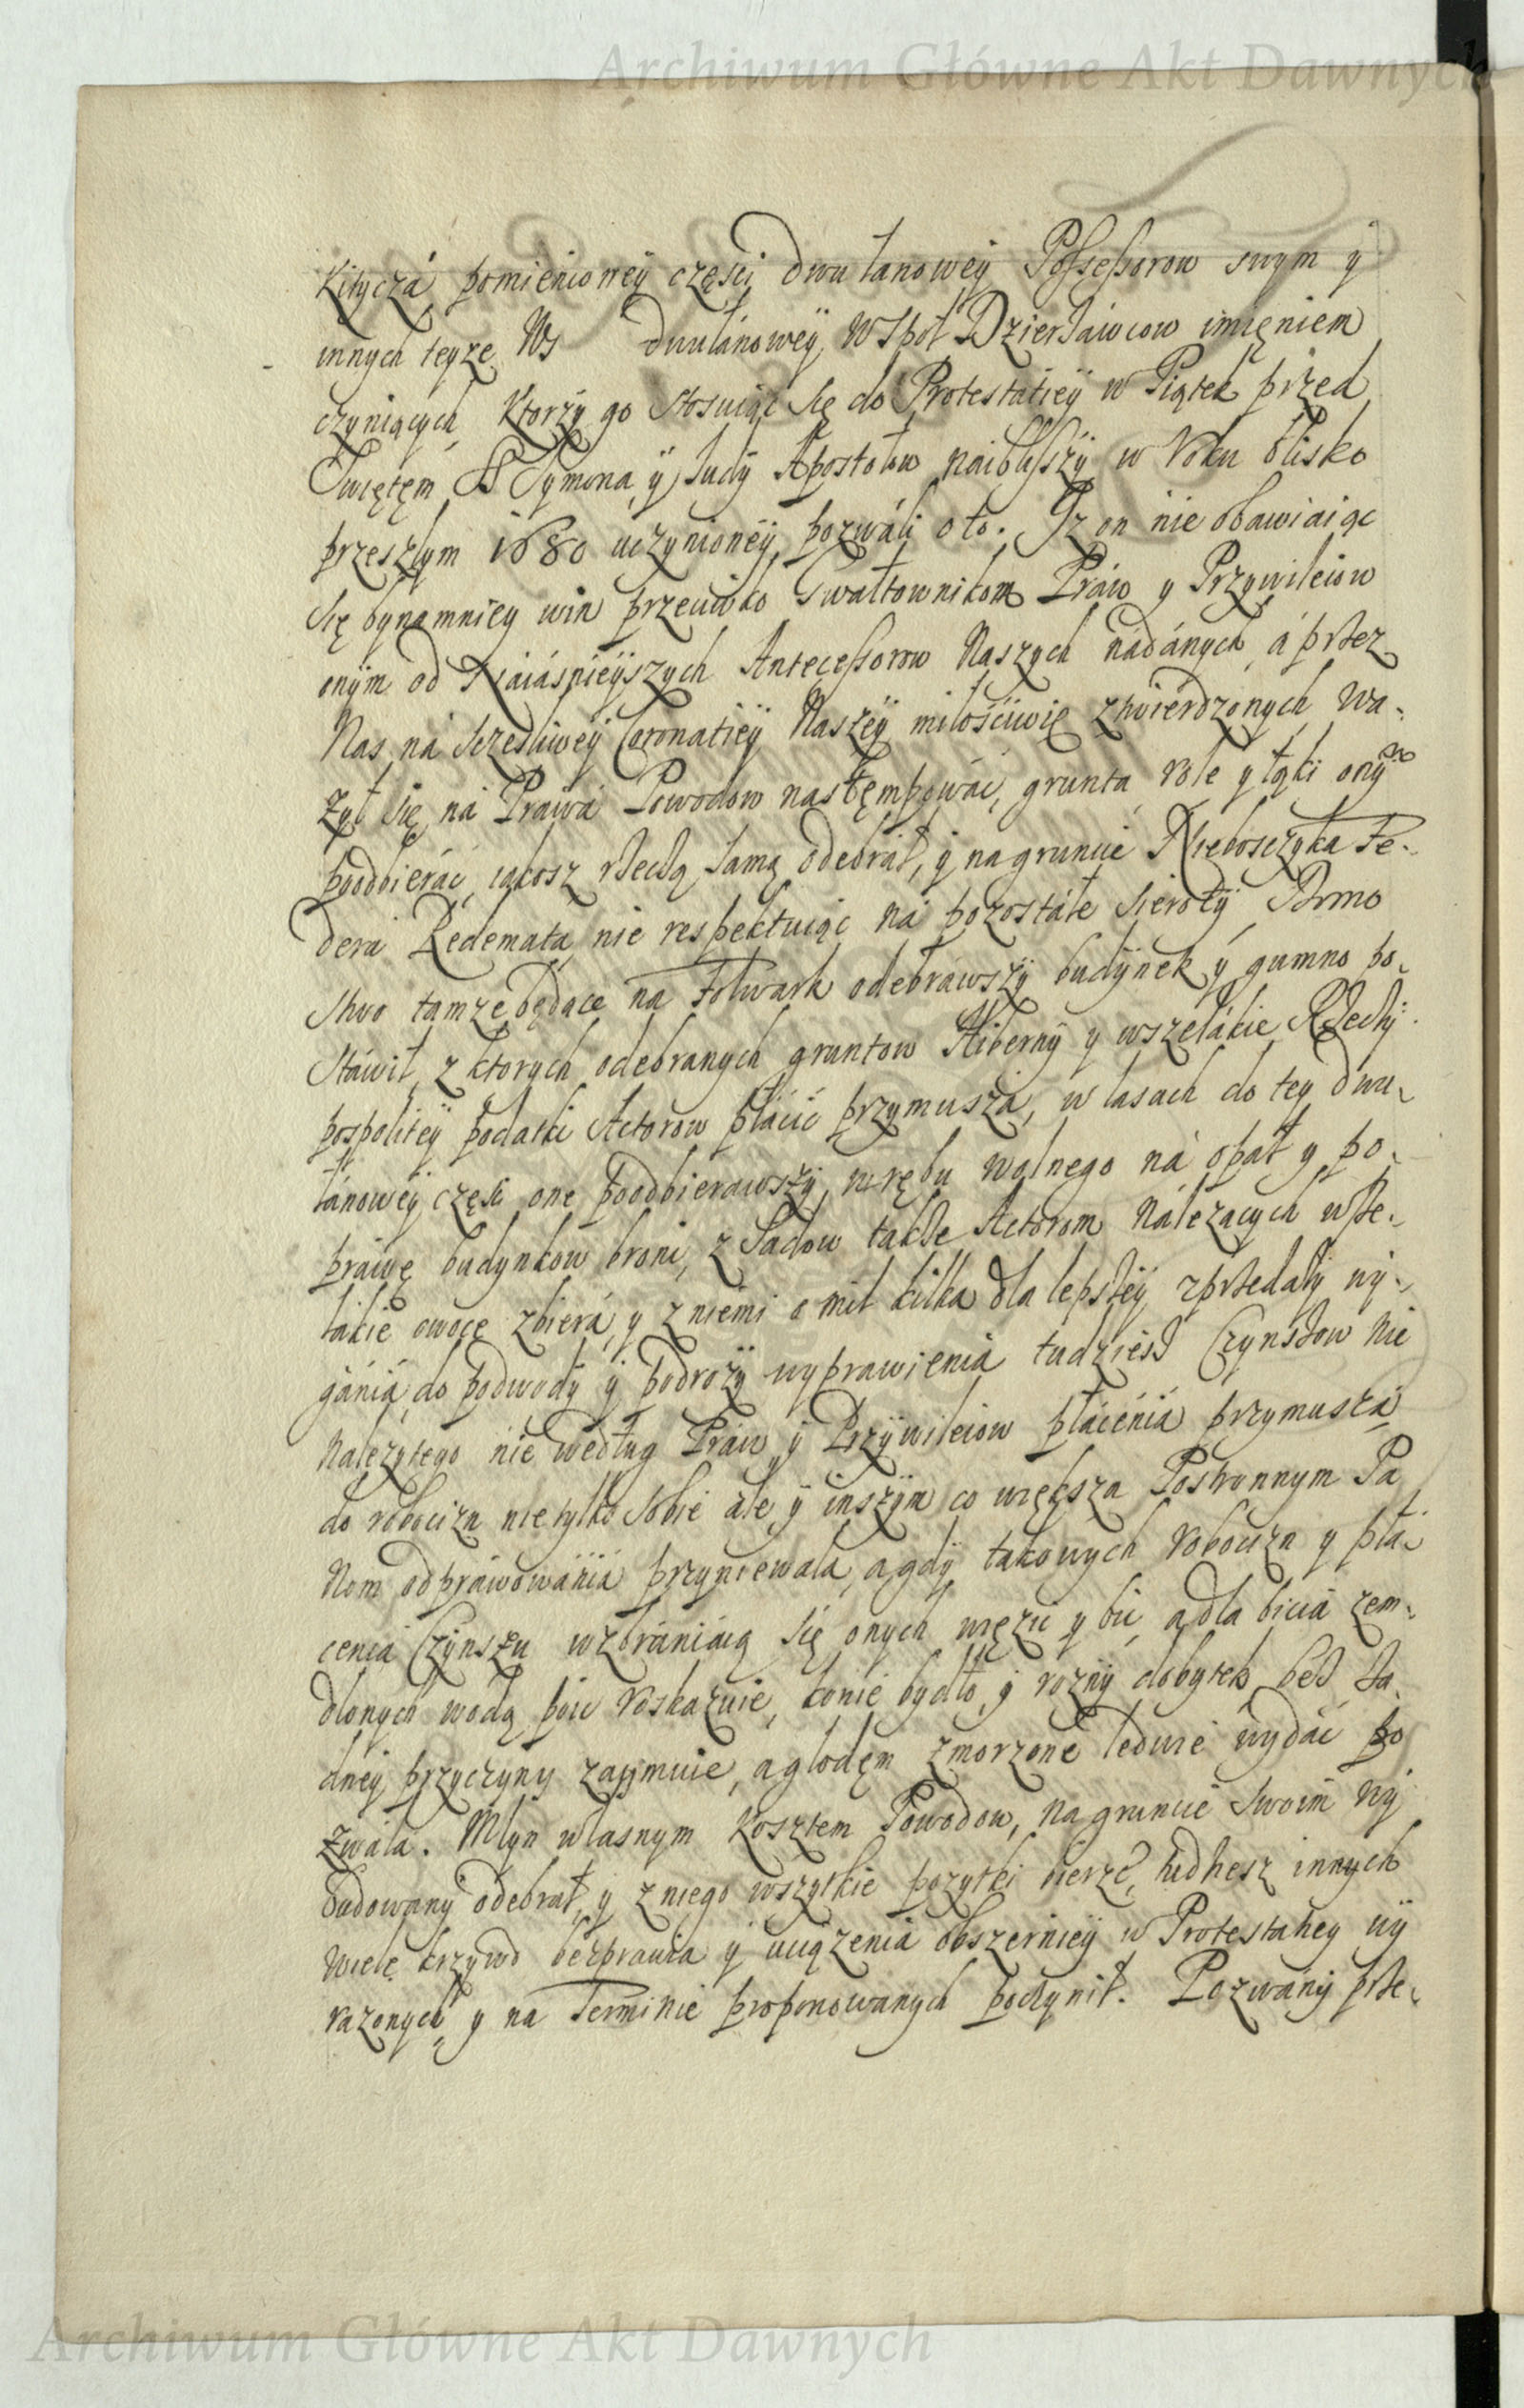 Archiwum Główne Akt Dawnych
Kitycza, pomienioney części dwu łanowey Possessorow swym y
innych teyze Ws dwułanowey, Wspoł Dzierżawcow imięniem
czyniących, Ktorzy go stosuiąc się do Protestatiey w Piątek przed
Swiętem SS Symona y Judy Apostołow naibliższy w Roku blisko
przeszłym 1680 uczynioney, pozwali o to. Iz on nie obawiaiąc
się bynamniey win przeciwko Gwałtownikom Praw y Przywileiow
onym od Naiaśnieyszych Antecessorow Naszych nadanych, a przez
Nas na sczęsliwey Coronatiey Naszey miłościwie zwierdzonych wa-
żył się na Prawa Powodow nastempować, grunta, role y łąki onym
poodbierać, iakosz rzeczą samą odebrał, y na gruncie Niebosczyka Fe-
dera Dedemata, nie respektuiąc na pozostałe sieroty Brmo
stwo tamze będące na Folwark odebrawszy budynek y gumno po-
stawił, z ktorych odebranych gruntow Hiberny y wszelakie Rzeczy-
pospolitey podatki Actorow płacić przymusza, w lasach do tey dwu-
łanowey częsci one poodbierawszy, wrębu wolnego na opał y po-
prawę budynkow broni, z Sadow takze Actorom Należących wsze-
lakie owoce zbiera, y z niemi o mil kilka dla lepszey zprzedaży wy-
gania, do podwody y podroży wyprawienia tudziesz Czynszow nie
należytego nie według Praw y Przywileiow płacenia przymusza
do robocizn nie tylko sobie ale y inszym co większa Postronnym Pa
Nom odprawowania przyniewala, a gdy takowych Robocizn y pła-
cenia Czynszu wzbraniaią się onych więzic y bić, a dla bicia zem-
dlonych wodą poic roskazuie, konie bydło, y rozny dobytek bez ża-
dney przyczyny zaymuie, a głodem zmorzone ledwie wydać po
zwala. Młyn własnym kosztem Powodow, na gruncie swoim wy
budowany odebrał, y z niego wszytkie pożytki bierze, tudziesz innych
wiele krzywd bezprawia y uciążenia obszerniey w Protestatiey wy
rażonych, y na Terminie proponowanych poczynił. Pozwany prze-
Archiwum Główne Akt Dawnych